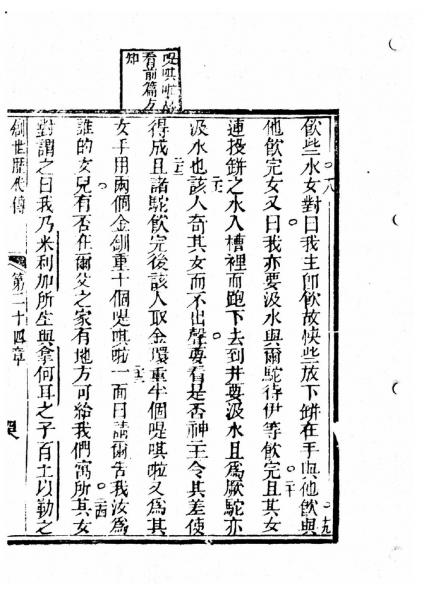 呢唭啦故
看前篇方
知
飲些水女對曰我主卽飲故快些放下餅在手與他飲與
他飲完女又曰我亦要汲水與爾駝待伊等飲完且其女
連投餅之水入槽裡而跑下去到井要汲水且為厥駝亦
汲水也該人奇其女而不出聲要看是否神主令其差使
得成且諸駝飲完後該人取金環重半個嗁唭啦又為其
女手用兩個金釧重十個嗁唭啦一面曰請爾吿我汝為
誰的女兒有否在爾父之家有地方可給我們寓所其女
對謂之曰我乃米利加所生與拿何耳之子百土以勒之
創世歷代傳 第二十四章
十八 十九 二十 二一 二二 二三 二四